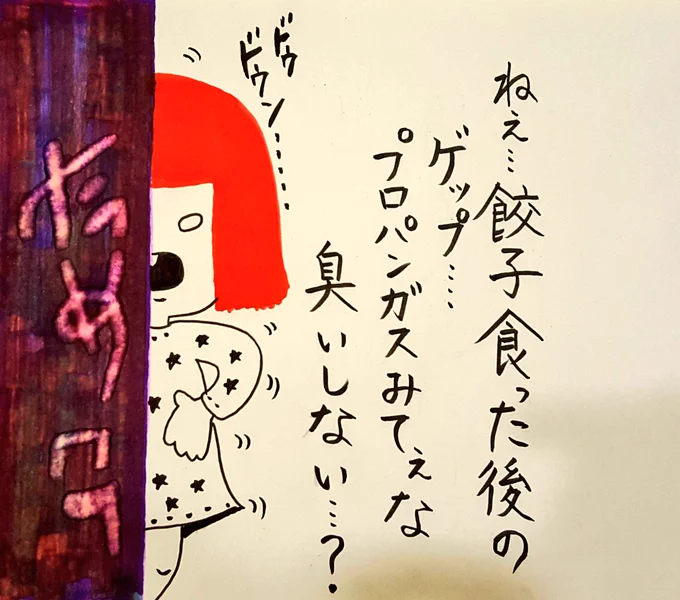 ねぇ…餃子食った後の
ゲップ……
プロパンガスみてぇな
臭いしない…？
ドゥ
ドゥン……
だめ